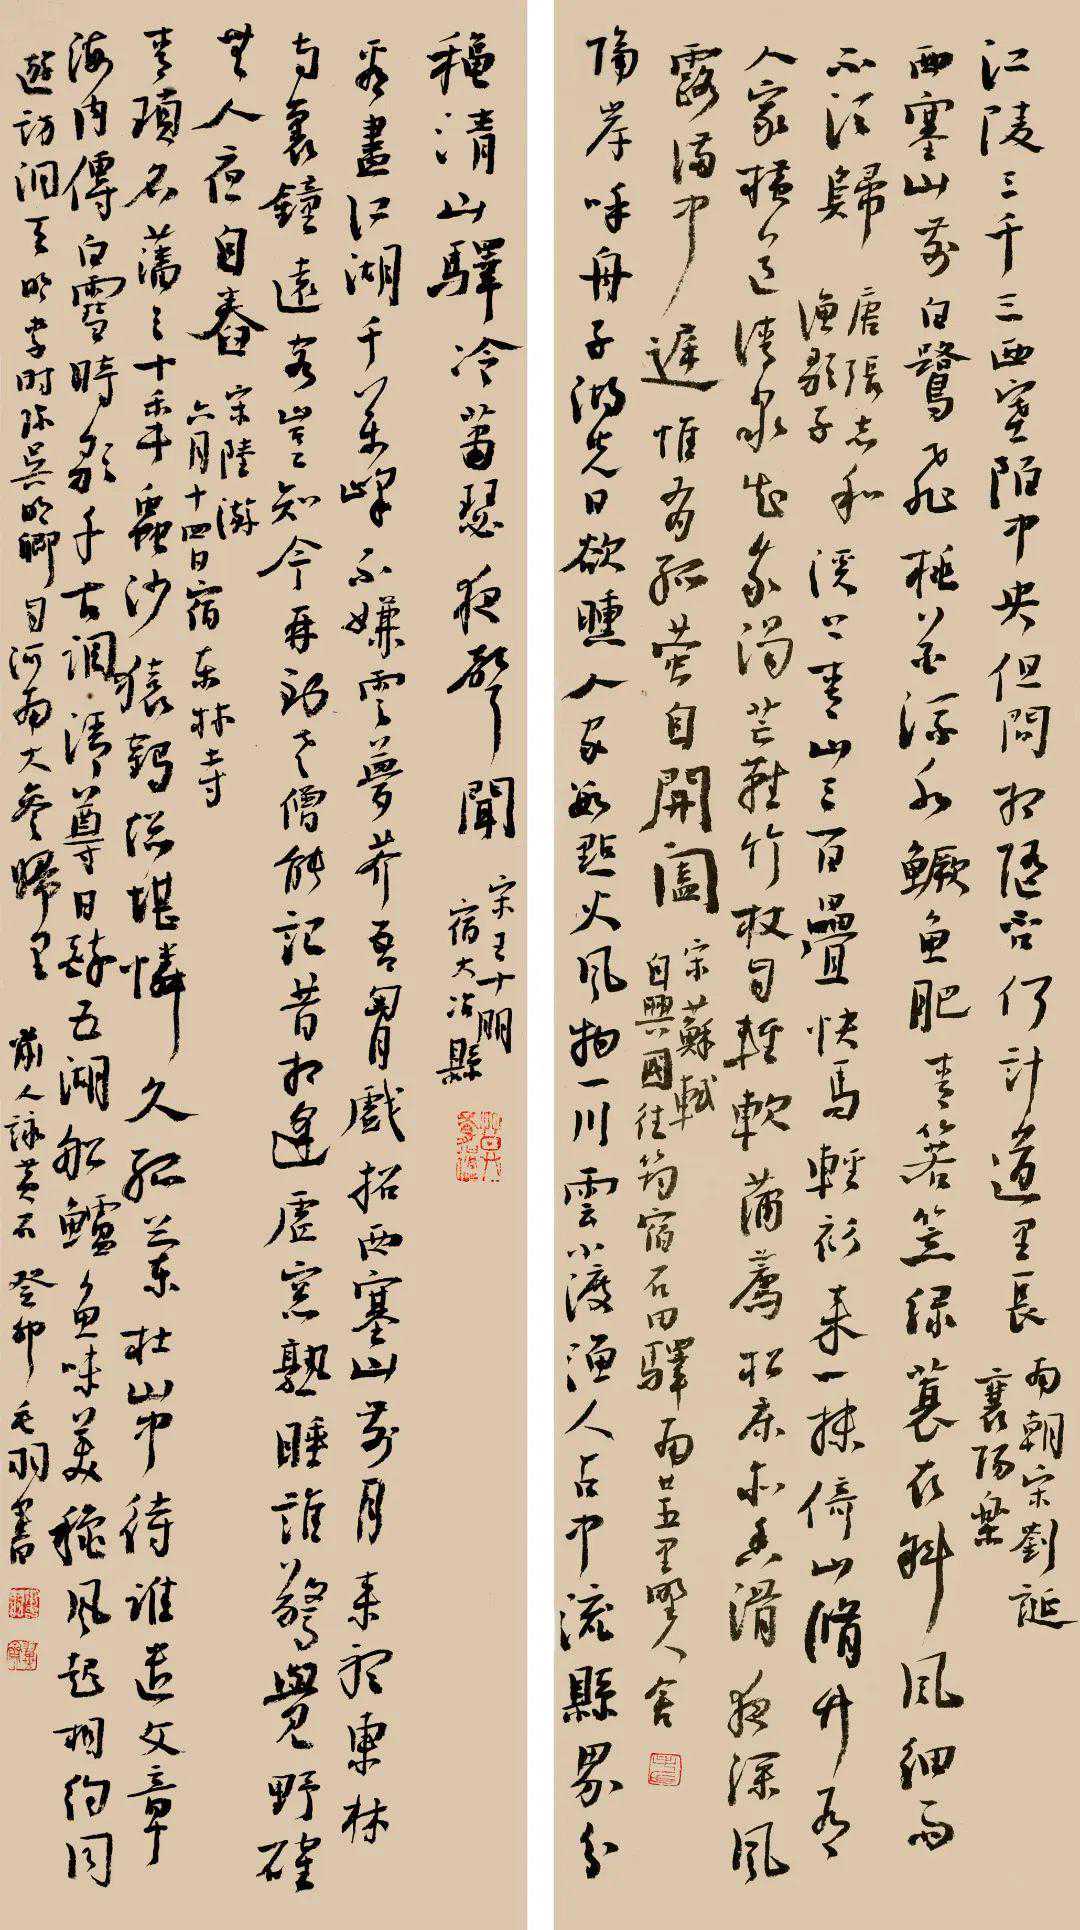 江陵三千三西塞陌中央但問相隨否何計道里長
南朝宋劉誕
襄陽樂
西塞山前白鷺飛桃花流水鱖魚肥青箬笠綠蓑衣斜風細雨
不須歸
唐張志和
漁歌子
溪上青山三百疊快馬輕衫來一抹倚山脩竹有
人家橫道清泉知我渴芒鞋竹杖自輕軟蒲薦松床亦香滑夜深風
露滿中庭惟有孤螢自開闔
宋蘇軾
自興國往筠宿石田驛南廿五里野人舍
隔岸呼舟子湖光日欲曛人家數點火風物一川雲小渡漁人占中流縣界分
穐清山驛冷蕭瑟夜聲聞
宋王十朋
宿大冶縣
看盡江湖千萬峰不嫌雲夢芥吾胸戲招西塞山前月來聽東林
寺裏鐘遠客豈知今再到老僧能記昔相逢虛窓熟睡誰驚覺野碓
無人夜自舂
宋陸游
六月十四日宿東林寺
青瑣名藩三十年蟲沙猿鶴總堪憐久孤蘭杜山中待誰遣文章
海內傳白雪時歌千古調清尊日醉五湖船鱸魚味美穐風起相約同
遊訪洞天明李時珍吳明卿自河南大參歸里
前人詠黃石癸卯毛羽書